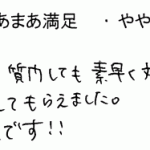 あまあ満足 ・やや
質内しても 素早く対
してもらえました。
です!!